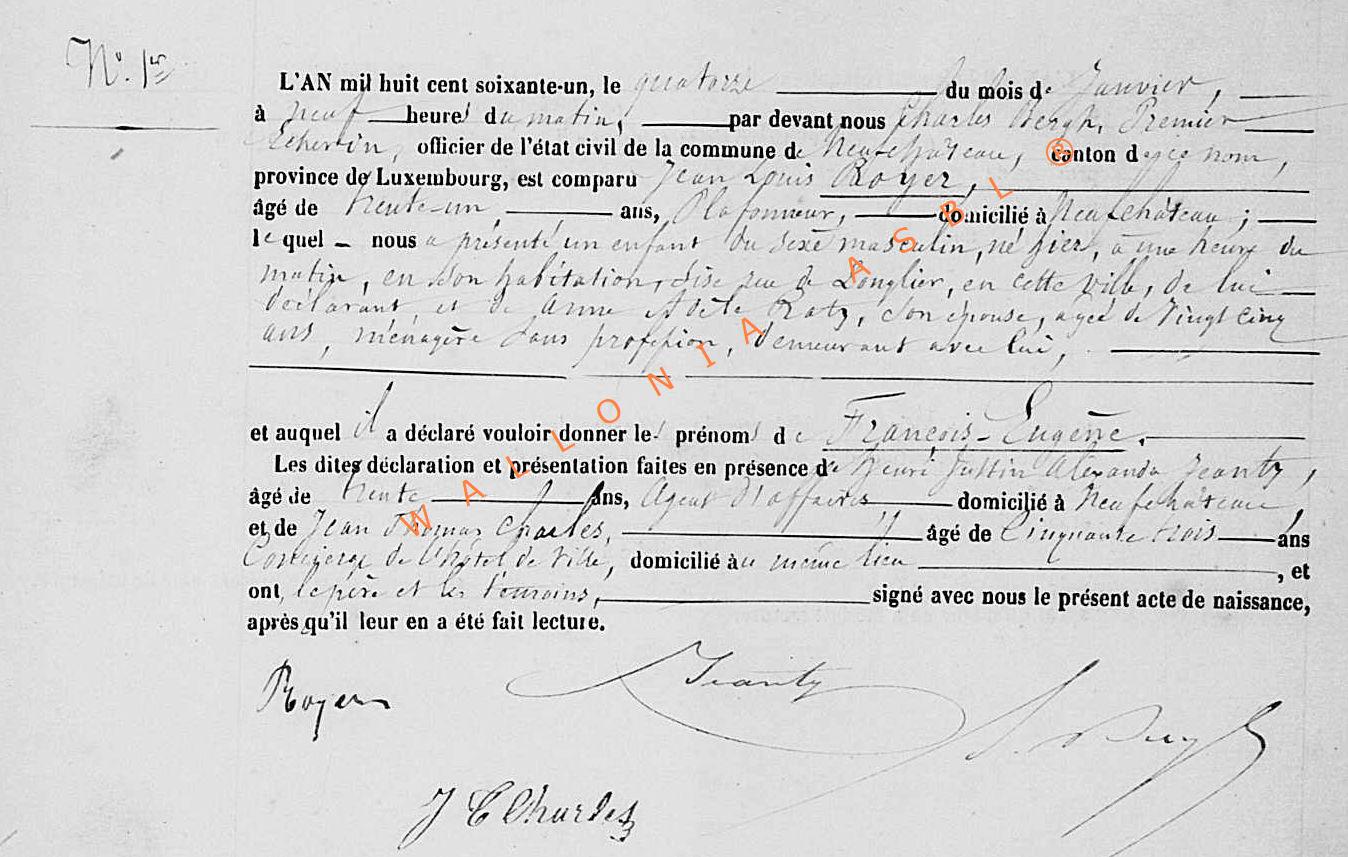 N°. 1er
L'AN mil huit cent soixante-un, le quatorze du mois de Janvier,
à neuf heures du matin, par devant nous Charles Bergh, Premier
Echevin, officier de l'état civil de la commune de Neufchâteau, canton du nom,
province de Luxembourg, est comparu Jean Louis Royer,
âgé de trente-un, ans, Plafonneur, domicilié à Neufchâteau;
lequel nous a présenté un enfant du sexe masculin, né hier, à une heure du
matin, en son habitation, sise rue de Longlier, en cette ville, de lui
déclarant, et de Anne Adèle Ratz, son épouse, agée de vingt cinq
ans, ménagère sans profession, demeurant avec lui,
et auquel il a déclaré vouloir donner les prénoms de François-Eugène.
Les dites déclaration et présentation faites en présence de Henri Justin Alexandre Jeanty,
âgé de trente ans, Agent d'affaires, domicilié à Neufchâteau,
et de Jean Thomas Charles, âgé de Cinquante trois ans
Concierge de l'hôtel de Ville, domicilié au même lieu, et
ont, le père et les témoins, signé avec nous le présent acte de naissance,
après qu'il leur en a été fait lecture.
Royer Jeanty
J T Charles
WALLONIA ASBL ©